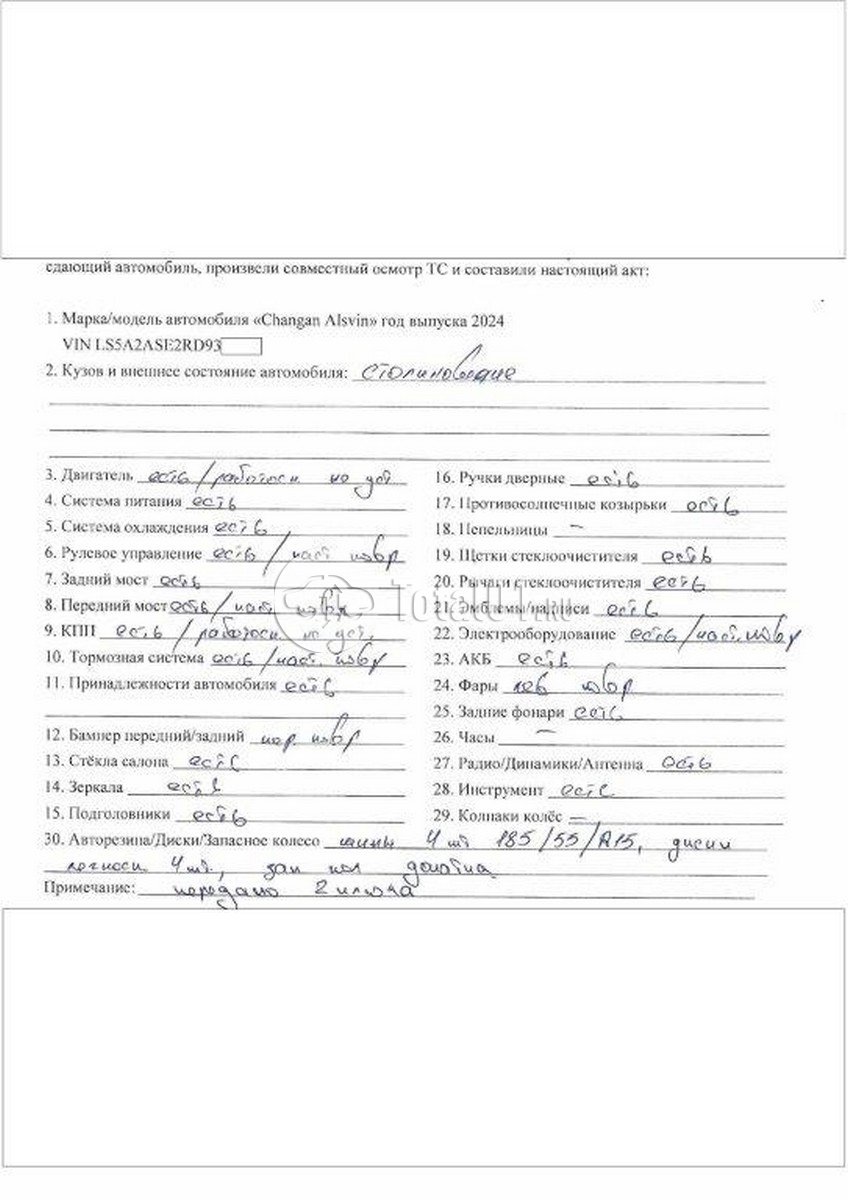 едающий автомобиль, произвели совместный осмотр ТС и составили настоящий акт:
1. Марка/модель автомобиля «Changan Alsvin» год выпуска 2024
VIN LS5A2ASE2RD93
2. Кузов и внешнее состояние автомобиля: столкновение
3. Двигатель есть / работосп не уст
4. Система питания есть
5. Система охлаждения есть
6. Рулевое управление есть / част повр
7. Задний мост есть
8. Передний мост есть / част повр
9. КПП есть / работосп не уст,
10. Тормозная система есть / част. повр
11. Принадлежности автомобиля есть
12. Бампер передний/задний пер. повр
13. Стёкла салона есть
14. Зеркала есть
15. Подголовники есть
16. Ручки дверные есть
17. Противосолнечные козырьки есть
18. Пепельницы –
19. Щетки стеклоочистителя есть
20. Рычаги стеклоочистителя есть
21. Эмблемы/надписи есть
22. Электрооборудование есть/част.повр
23. АКБ есть
24. Фары лев повр
25. Задние фонари есть
26. Часы –
27. Радио/Динамики/Антенна есть
28. Инструмент есть
29. Колпаки колёс –
30. Авторезина/Диски/Запасное колесо шины 4 шт 185/55/R15, диски
легкосп 4 шт., зап кол докатка
Примечание: передано 2 ключа
Total01.ru